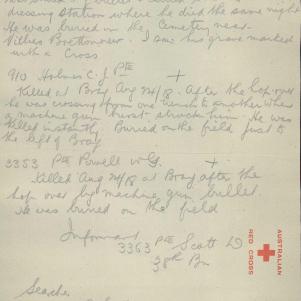 dressing station where he died the same night
He was buried in the Cemetery near
Villers Brettonneux. I saw his grave marked
with a Cross
910 Holmes C. J Pte
Killed at Bray Aug 24/18. After the hop-over
he was crossing from one trench to another when
a machine gun burst, struck him. He was
killed instantly Buried on the field just to
the left of Bray
3353 Pte Powell W G.
Killed Aug 24/18 at Bray after the
hop over by machine gun bullet.
He was buried on the field
Informant
3363 Pte Scott
38th Bn
Searcher
AUSTRALIAN
RED CROSS